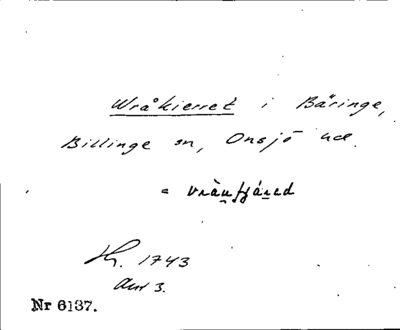 Wråkierret i Båringe,
Billinge sn, Onsjö hd.
=
H. 1743
Akt 3.
Nr 6137.